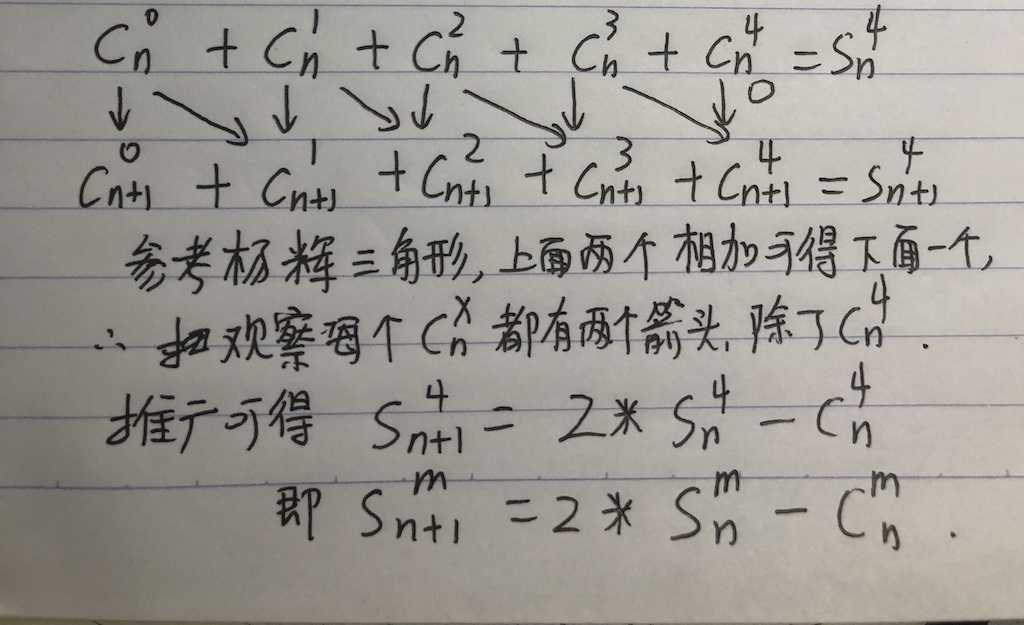 Cₙ⁰ + Cₙ¹ + Cₙ² + Cₙ³ + Cₙ⁴ = Sₙ⁴
↓ ↘ ↓ ↘ ↓ ↘ ↓ ↘ ↓ 0
Cₙ₊₁⁰ + Cₙ₊₁¹ + Cₙ₊₁² + Cₙ₊₁³ + Cₙ₊₁⁴ = Sₙ₊₁⁴
参考杨辉三角形, 上面两个相加可得下面一个,
∴ 观察每个 Cₙˣ 都有两个箭头, 除了 Cₙ⁴ .
推广可得 Sₙ₊₁⁴ = 2 * Sₙ⁴ - Cₙ⁴
即 Sₙ₊₁ᵐ = 2 * Sₙᵐ - Cₙᵐ .